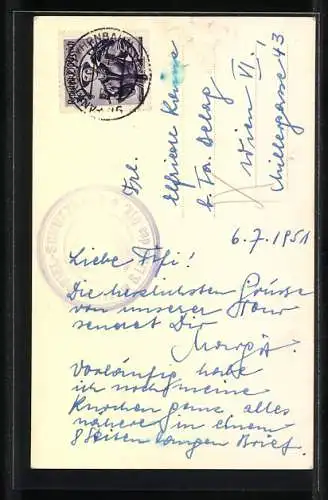 Frl.
Elfriede
b. Fa. Delag
Wien VI.
Millergasse 43
6.7.1951
Liebe Effi!
Die herzlichsten Grüsse
von unserer Tour
sendet Dir
Vorläufig habe
ich noch meine
Knochen ganz alles
nähere in einem
8 Seiten langen Brief.